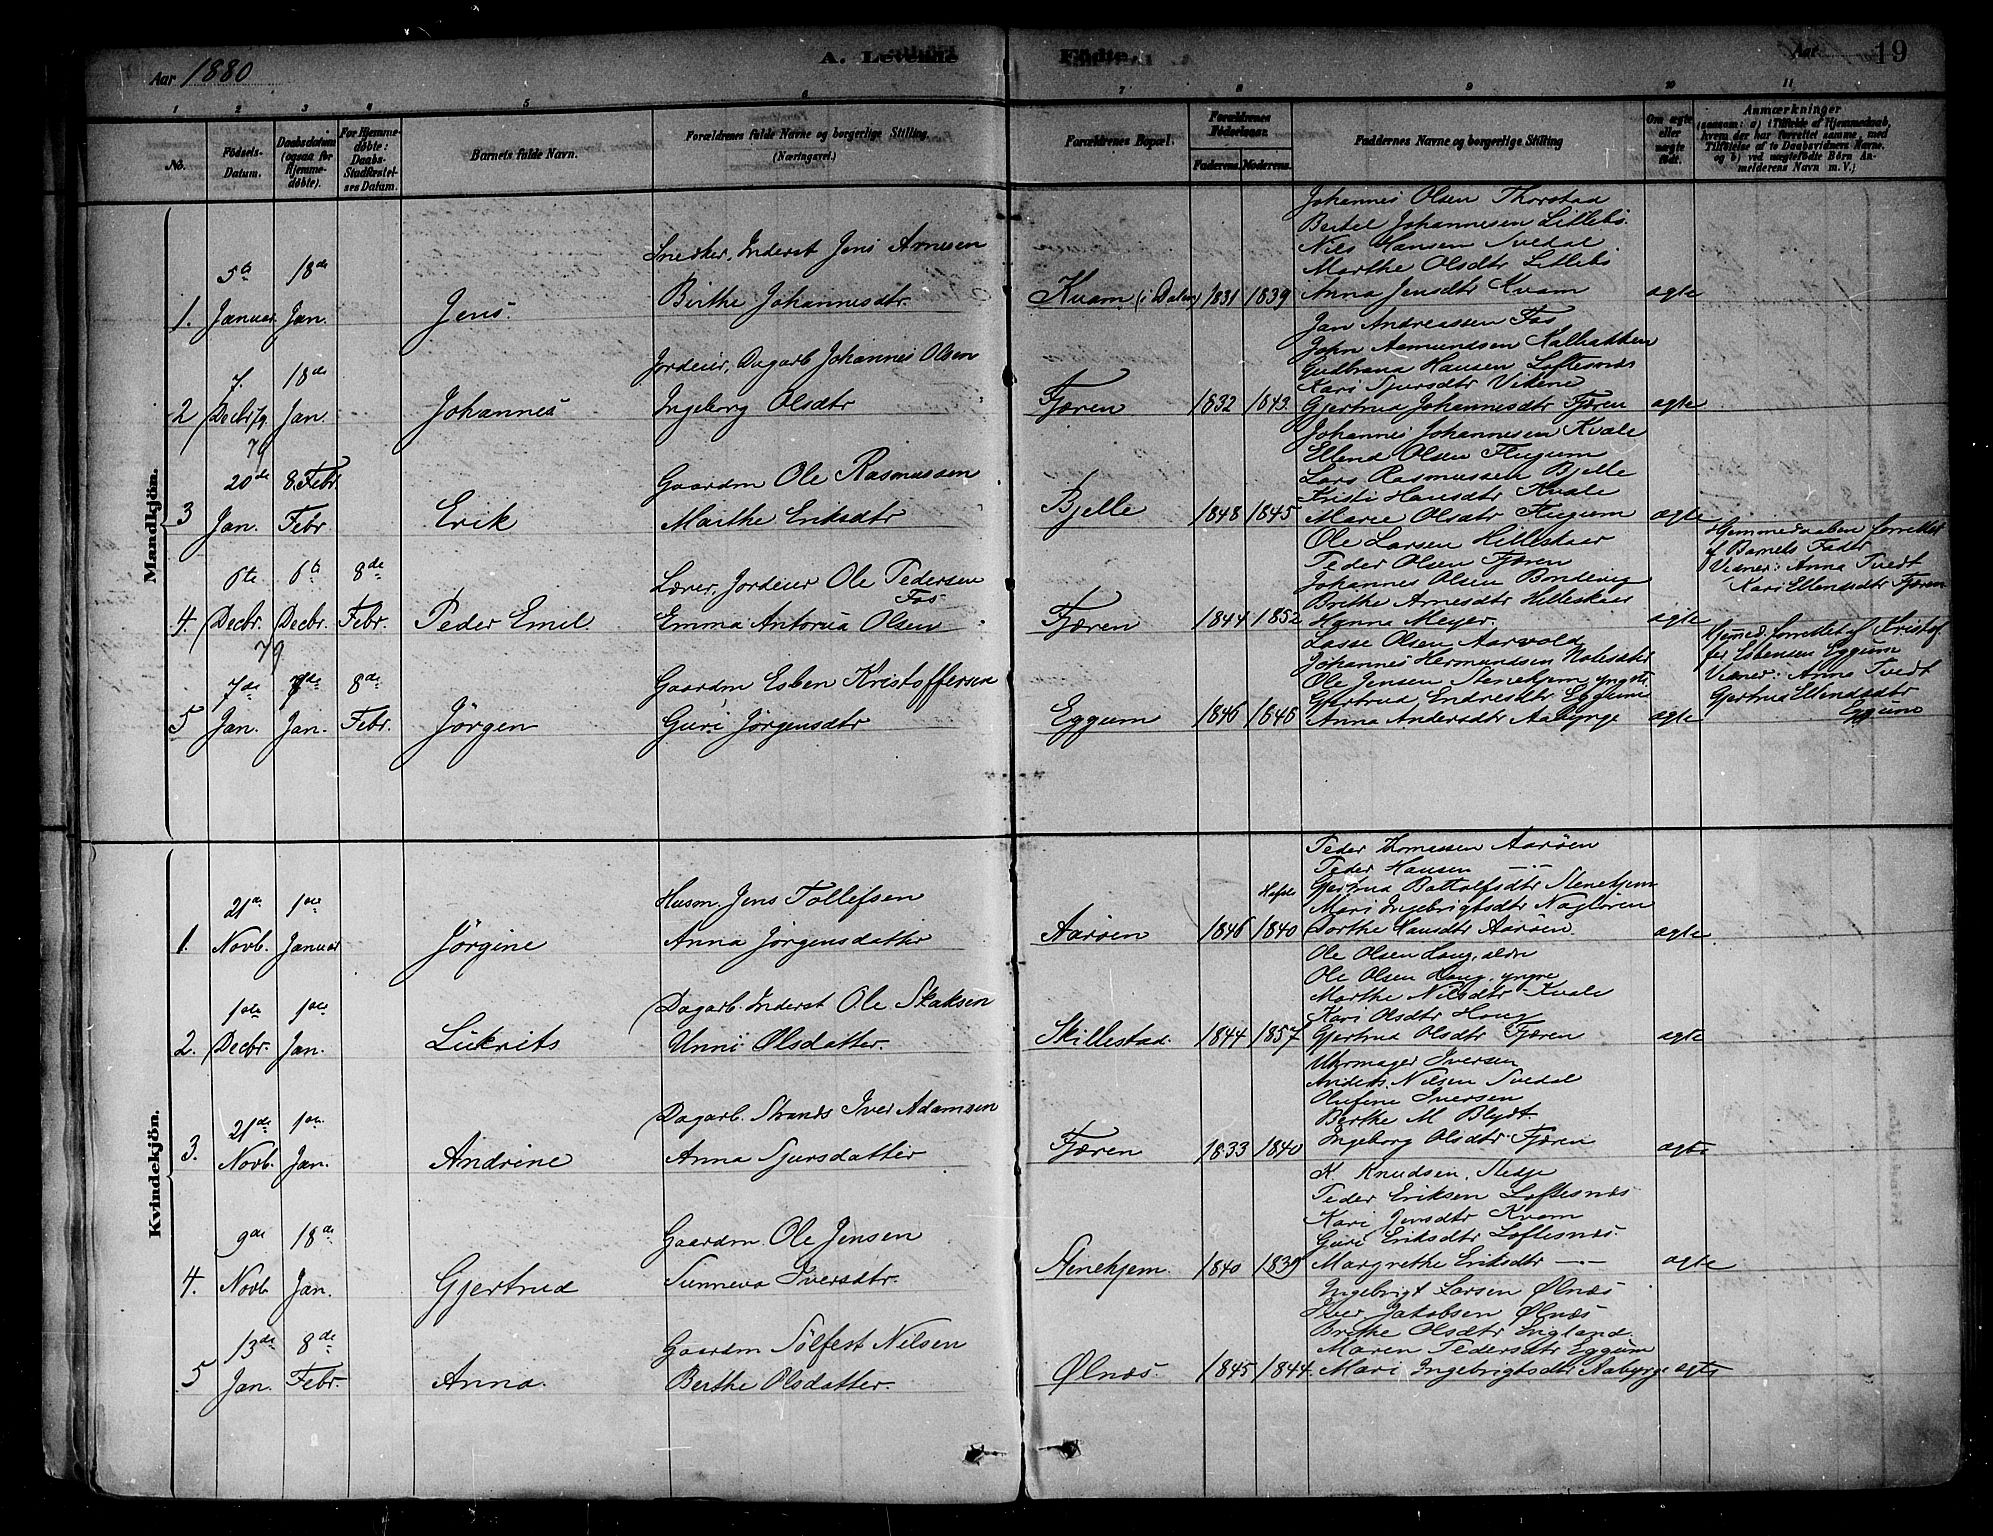 Aar 1880
A. Levende
Fødte.
Aar
19
1 2 3 4 5 6 7 8 9 10 11
No.
Födsels-Datum.
Daabsdatum (ogsaa for Hjemmedøbte).
For Hjemmedøbte: Daabs-Stadfæstelses Datum.
Barnets fulde Navn.
Forældrenes fulde Navne og borgerlige Stilling. (Næringsvei.)
Forældrenes Bopæl.
Forældrenes Födselsaar.
Faderens. Moderens.
Faddernes Navne og borgerlige Stilling
Om ægte eller uægte født.
Anmærkninger
(saasom: a) i Tilfælde af Hjemmedaab, hvem der har forrettet samme, med Tilføielse af to Daabsvidners Navne. og b) ved uægtefødte Börn Anmelderens Navn m. V.)
Mandkjön.
1. 5te Januar 18de Jan. Jens.
Snedker, Inderst Jens Arnesen
Birthe Johannesdtr.
Kvam (i Dalen) 1831 1839
Johannes Olsen Thorstad
Bertel Johannesen Lillebö
Nils Hansen Svedal
Marthe Olsdtr Lillebö
Anna Jensdtr Kvam
ægte
2 7. Decbr 79 18de Jan. Johannes
Jordeier, Dagarb Johannes Olsen
Ingeborg Olsdtr
Fjæren 1832 1843.
Jan Andreassen Fos
John Aamundsen Kalbakken
Gudbrand Hansen Loftesnæs
Kari Sjursdtr Vikene
Gjertrud Johannesdtr Fjæren
ægte
3 20de Jan. 8. Febr Febr Erik
Gaardm Ole Rasmussen
Marthe Eriksdtr
Bjelle 1848 1845
Johannes Johannesen Kvale
Ellend Olsen Flugum
Lars Rasmussen Bjelle
Kristi Hansdtr Kvale
Marie Olsdtr Flugum
ægte
4. 6te Decbr. 79 6te Decbr. 8de Febr. Peder Emil.
Lærer, Jordeier Ole Pedersen Fos
Emma Antonia Olsen
Fjæren 1844 1852
Ole Larsen Hilleskaar
Peder Olsen Fjæren
Johannes Olsen Bondevig
Brithe Arnesdtr Hilleskaar
Hanna Meyer.
ægte
Hjemmedaaben forrettet
af Barnets Fader
Vidner: Anna Tvedt
Kari Ellendsdtr Fjæren
5 7de Jan. 7de Jan. 8de Febr. Jörgen
Gaardm Esben Kristoffersen
Guri Jörgensdtr
Eggum 1846 1848
Lasse Olsen Aarvold
Johannes Hermundsen Nölesæter
Ole Jensen Stenehjem yngre
Gjertrud Endresdtr Eggum
Anna Andersdtr Aabyrge
ægte
Hjemmed. forrettet af Kristof
fer Esbensen Eggum
Vidner: Anna Tvedt
Gjertrud Ellendsdtr
Eggum
Kvindekjön.
1. 21de Novb. 1ste Januar Jörgine
Husm. Jens Tollefsen
Anna Jörgensdatter
Aaröen 1846 1840
Peder Thomassen Aaröen
Peder Hansen —
Gjertrud Bottolfsdtr Stenehjem
Mari Ingebrigtsdtr Nagløren
Dorthe Hansdtr Aaröen.
ægte
2. 1ste Decbr. 1ste Jan. Lukrits
Dagarb. Inderst Ole Skaksen
Unni Olsdatter.
Skillestad. 1844 1857
Ole Olsen Haug, eldre
Ole Olsen Haug, yngre
Marthe Nilsdtr Kvale
Kari Olsdtr Haug
Gjertrud Olsdtr Fjæren
ægte
3. 21de Novb. 1ste Jan. Andrine
Dagarb. Strands. Iver Adamsen
Anna Sjursdatter
Fjæren 1833 1840
Uhrmager Iversen
Anders Nilsen Svedal
Olufine Iversen
Berthe M Blydt.
Ingeborg Olsdtr Fjæren
ægte
4. 9de Novb 18de Jan. Gjertrud
Gaardm. Ole Jensen
Sunneva Iversdtr.
Stenehjem. 1840 1839
K. Knudsen, Stedje
Peder Eriksen Loftesnæs
Kari Jensdtr Kvam
Guri Eriksdtr Loftesnæs.
Margrethe Eriksdtr —
ægte
5 13de Jan. 8de Febr. Anna.
Gaardm Sölfest Nilsen
Berthe Olsdatter.
Ølnæs. 1845 1844.
Ingebrigt Larsen Ølnæs
Iver Jakobsen Ølnæs
Brithe Olsdtr England
Maren Pedersdtr Eggum
Mari Ingebrigtsdtr Aabyrge
ægte